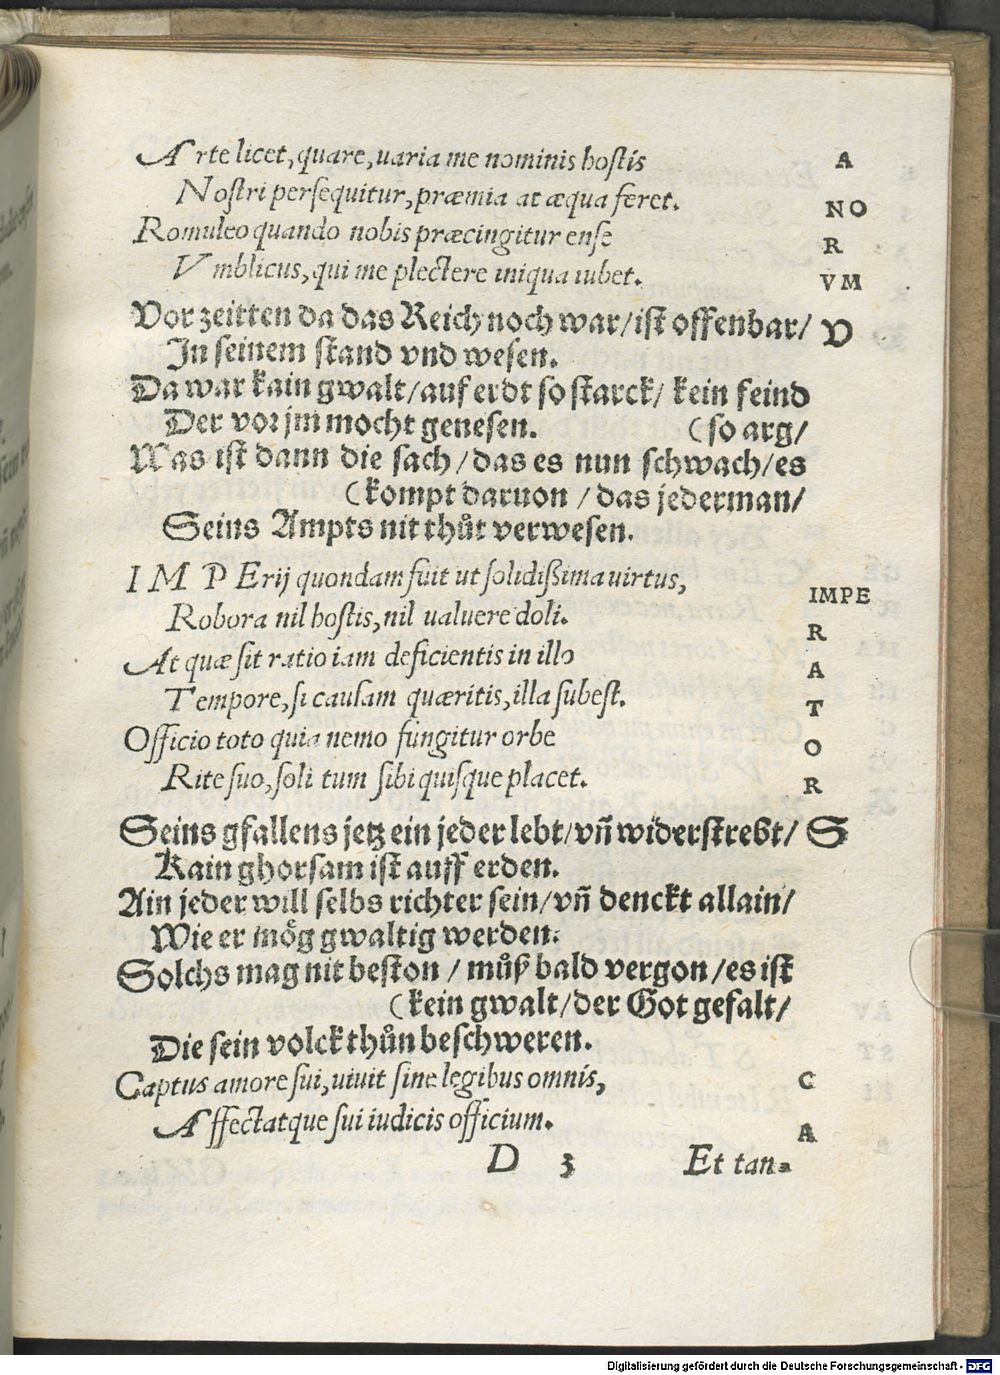 Arte licet, quare, uaria me nominis hostis A
Nostri persequitur, præmia at æqua feret. NO
Romuleo quando nobis præcingitur ense R
Vmblicus, qui me plectere iniqua iubet. VM
Vor zeitten da das Reich noch war/ist offenbar/ V
In seinem stand vnd wesen.
Da war kain gwalt/auf erdt so starck/ kein feind
Der vor jm mocht genesen. (so arg/
Was ist dann die sach/das es nun schwach/es
(kompt daruon / das jederman/
Seins Ampts nit thůt verwesen.
IMPErij quondam fuit ut solidißima uirtus, IMPE
Robora nil hostis, nil ualuere doli. R
At quæ sit ratio iam deficientis in illo A
Tempore, si causam quæritis, illa subest. T
Officio toto quia nemo fungitur orbe O
Rite suo, soli tum sibi quisque placet. R
Seins gfallens jetz ein jeder lebt/vñ widerstrebt/ S
Kain ghorsam ist auff erden.
Ain jeder will selbs richter sein/vñ denckt allain/
Wie er mög gwaltig werden.
Solchs mag nit beston / můß bald vergon/es ist
(kein gwalt/der Got gefalt/
Die sein volck thůn beschweren.
Captus amore sui, uiuit sine legibus omnis, C
Affectatque sui iudicis officium. A
D 3 Et tan-
Digitalisierung gefördert durch die Deutsche Forschungsgemeinschaft - DFG